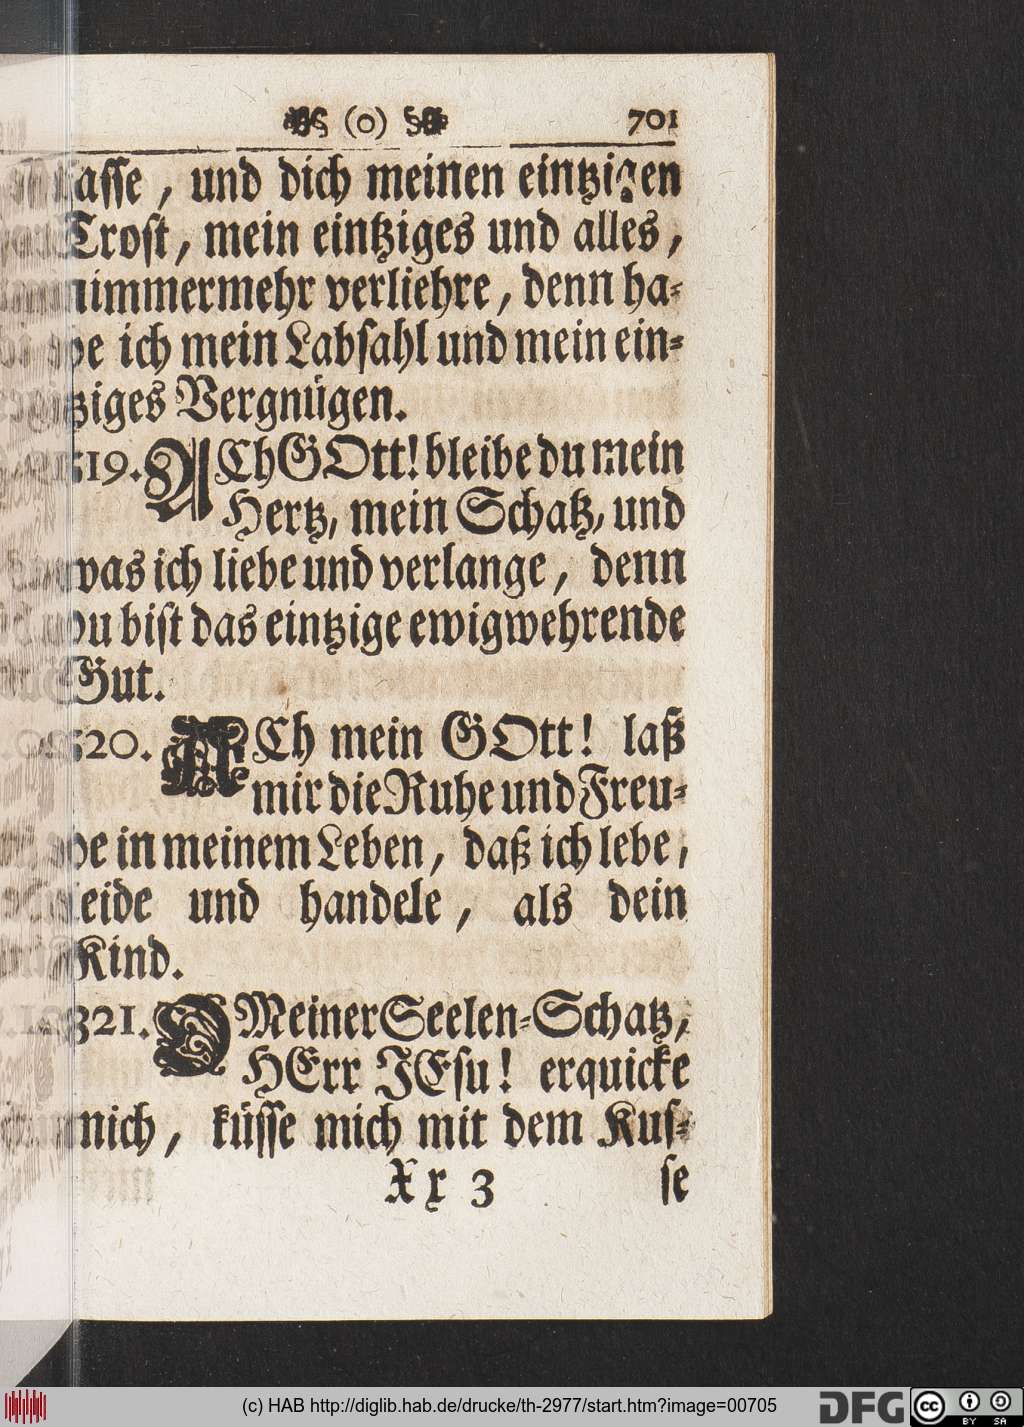 (o) 701
lasse, und dich meinen eintzigen
Trost, mein eintziges und alles,
nimmermehr verliehre, denn ha-
be ich mein Labsahl und mein ein-
tziges Vergnügen.
1519. ACh GOtt! bleibe du mein
Hertz, mein Schatz, und
was ich liebe und verlange, denn
du bist das eintzige ewigwehrende
Gut.
1520. ACh mein GOtt! laß
mir die Ruhe und Freu-
de in meinem Leben, daß ich lebe,
leide und handele, als dein
Kind.
1521. O Meiner Seelen-Schatz,
HErr JEsu! erquicke
mich, küsse mich mit dem Kus-
Xx 3 se
(c) HAB http://diglib.hab.de/drucke/th-2977/start.htm?image=00705
DFG
cc BY SA